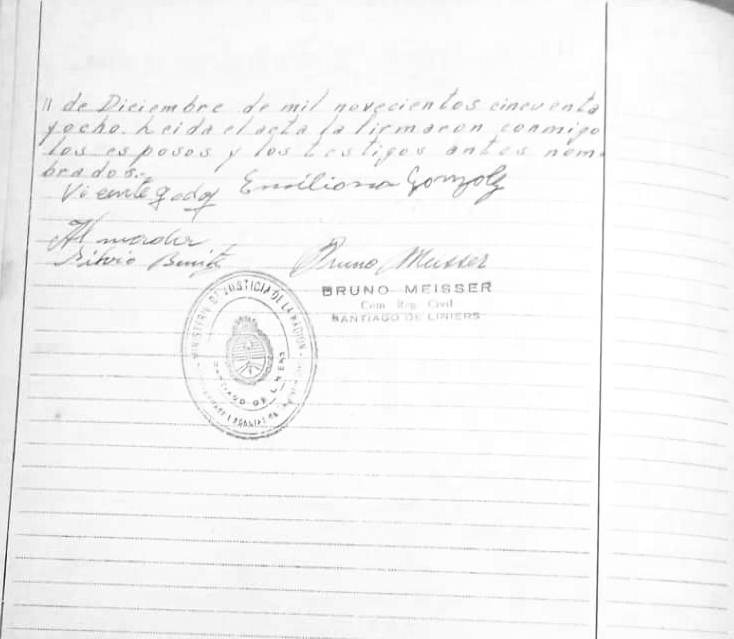 11 de Diciembre de mil novecientos cincuenta
y ocho. Leida el acta la firmaron conmigo
los esposos y los testigos antes nom-
brados.-
Vicente Godoy Emiliana Gonzalz
Silvio Benit
Bruno Meisser
BRUNO MEISSER
Com. Reg. Civil
SANTIAGO DE LINIERS
MINISTERIO DE JUSTICIA DE LA NACION
SANTIAGO DE LINIERS